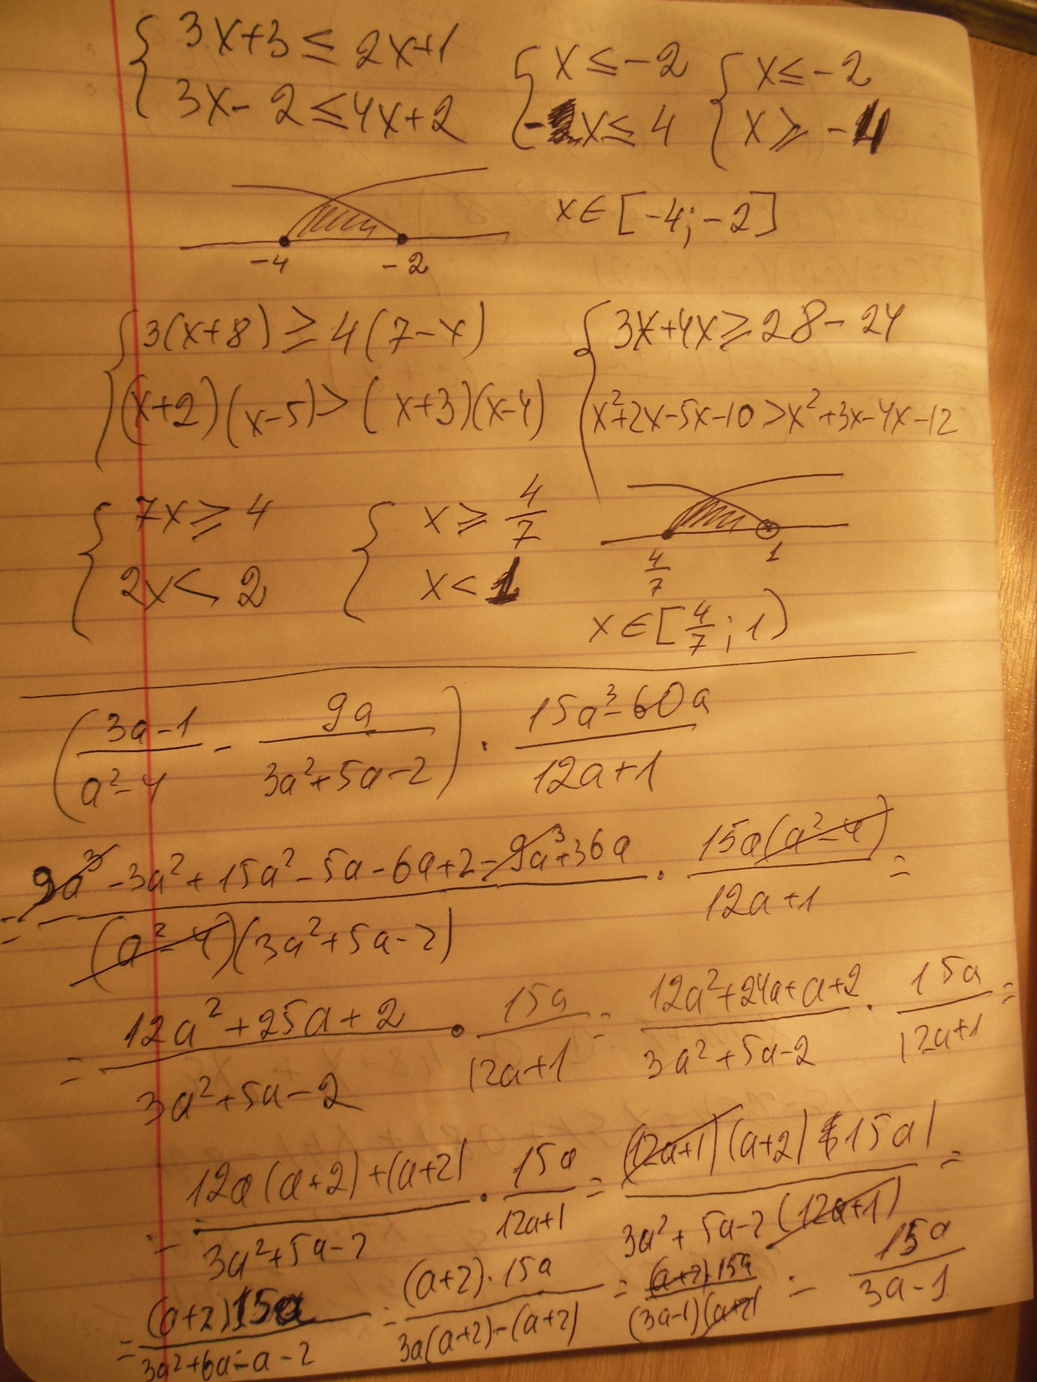 { 3x+3 ≤ 2x+1 { x ≤ -2 { x ≤ -2
3x-2 ≤ 4x+2 -x ≤ 4 x ≥ -4
-4 -2 x ∈ [-4; -2]
{ 3(x+8) ≥ 4(7-x) { 3x+4x ≥ 28-24
(x+2)(x-5) > (x+3)(x-4) x²+2x-5x-10 > x²+3x-4x-12
{ 7x ≥ 4 { x ≥ 4/7
2x < 2 x < 1 4/7 1
x ∈ [4/7; 1)
((3a-1)/(a²-4) - 9a/(3a²+5a-2)) · (15a³-60a)/(12a+1)
= (9a³-3a²+15a²-5a-6a+2-9a³+36a)/((a²-4)(3a²+5a-2)) · 15a(a²-4)/(12a+1) =
= (12a²+25a+2)/(3a²+5a-2) · 15a/(12a+1) = (12a²+24a+a+2)/(3a²+5a-2) · 15a/(12a+1) =
= (12a(a+2)+(a+2))/(3a²+5a-2) · 15a/(12a+1) = ((12a+1)(a+2)(15a))/(3a²+5a-2(12a+1)) =
= (a+2)15a/(3a²+6a-a-2) = (a+2)·15a/(3a(a+2)-(a+2)) = (a+2)·15a/((3a-1)(a+2)) = 15a/(3a-1)